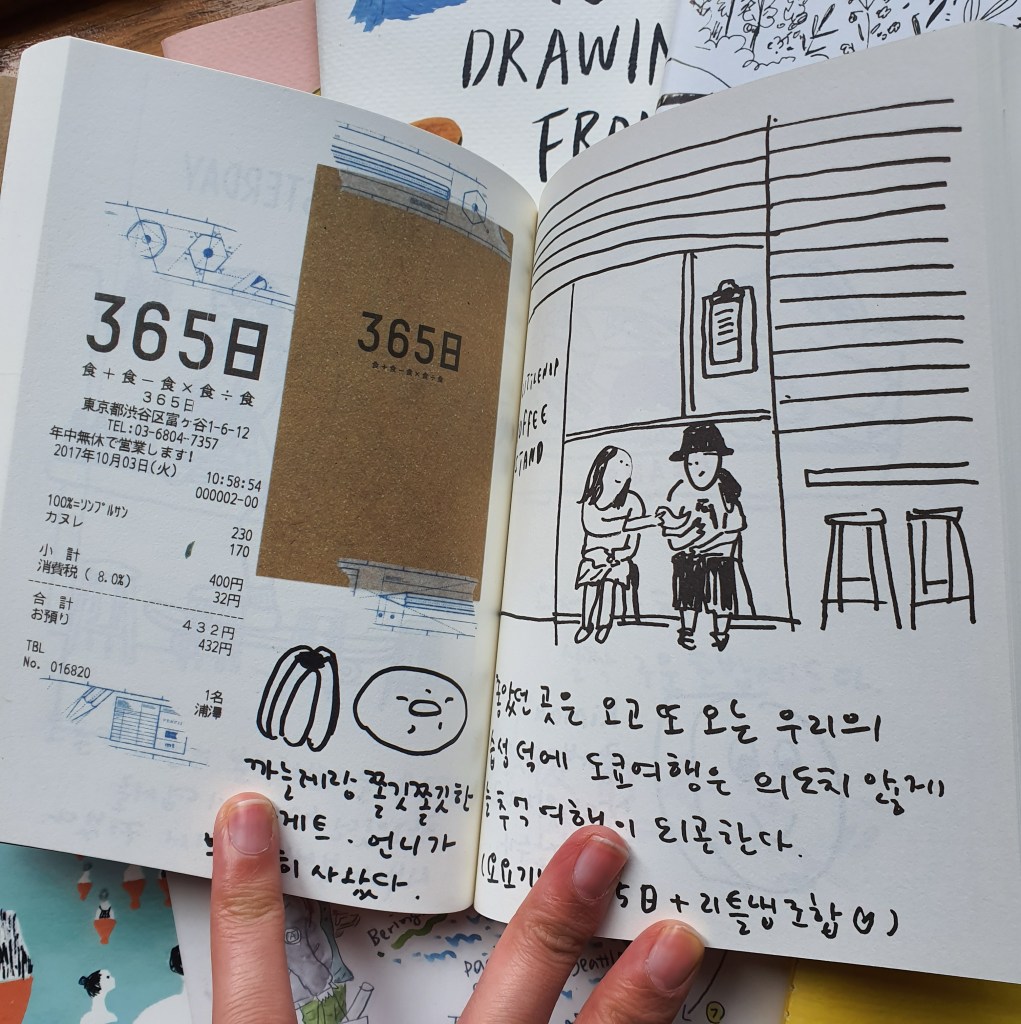 DRAWIN
FRO
365日
食+食−食×食÷食
365日
東京都渋谷区富ヶ谷1-6-12
TEL:03-6804-7357
年中無休で営業します!
2017年10月03日(火)
10:58:54
000002-00
100%=ソンプルサン 230
カヌレ 170
小 計 400円
消費税( 8.0%) 32円
合 計 432円
お預り 432円
TBL
No. 016820
1名
浦澤
365日
食+食−食×食÷食
까눌레랑 쫄깃쫄깃한
게트. 언니가
히 사왔다.
LITTLENAP
COFFEE
STAND
좋았던 곳은 오고 또 오는 우리의
습성 덕에 도쿄여행은 의도치 않게
추억 여행이 되곤한다.
5日+리틀냅조합
Bering